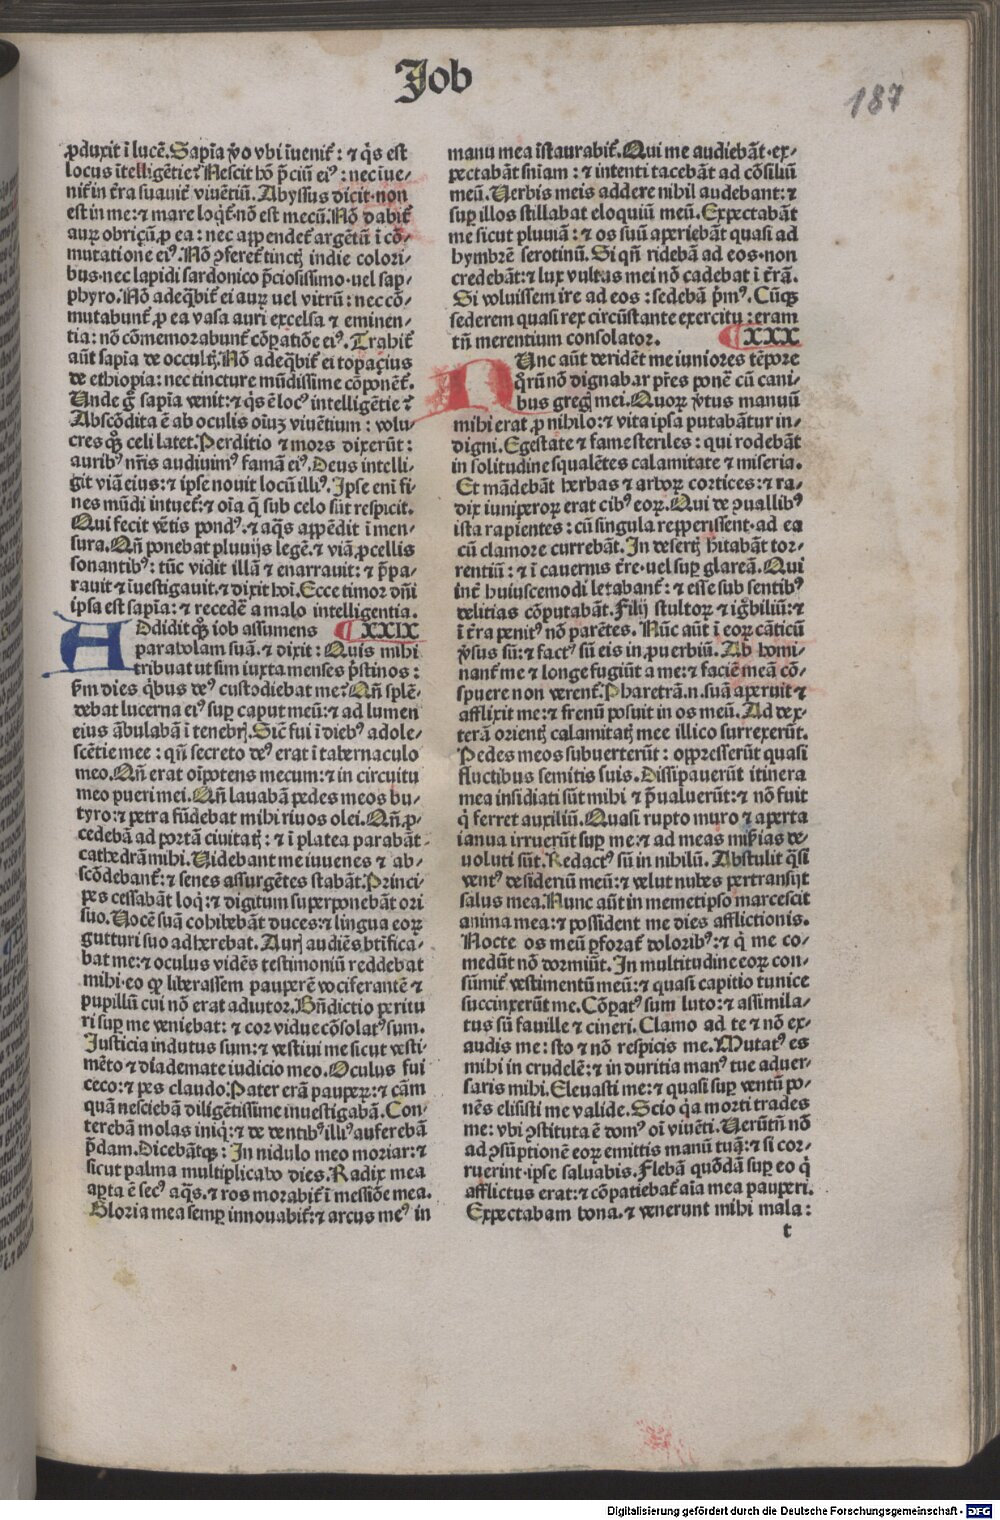 Job
187
ꝓduxit ī lucē. Sapīa ꝟo vbi īuenit᷑ : ⁊ q̄s est
locus ītelligētie? Nescit hō p̄ciū eiꝰ : nec īue-
nit᷑ in t̄ra suauit᷑ viuētiū. Abyssus dicit·non
est in me : ⁊ mare loqt᷑·nō est mecū. Nō dabit᷑
auꝝ obriçū ꝓ ea : nec appendet᷑ argētū ī cō-
mutatione eiꝰ. Nō ꝯferet᷑ tinctꝭ indie colori-
bus·nec lapidi sardonico p̄ciosissimo·uel sap-
phyro. Nō adeq̄bit᷑ ei auꝝ uel vitrū : nec cō-
mutabunt᷑ ꝓ ea vasa auri excelsa ⁊ eminen-
tia : nō cōmemorabunt᷑ cōꝑatiōe eiꝰ. Trahit᷑
aūt sapīa de occultꝭ. Nō adeq̄bit᷑ ei topaçius
de ethiopia : nec tincture mūdissime cōponēt᷑.
Unde gͦ sapīa venit : ⁊ q̄s ē locꝰ intelligētie?
Abscōdita ē ab oculis oīuꝫ viuētium : volu-
cres qꝫ celi latet. Perditio ⁊ mors dixerūt :
auribꝰ nr̄is audiuimꝰ famā eiꝰ. Deus intelli-
git viā eius : ⁊ ipse nouit locū illiꝰ. Ipse eni fi-
nes mūdi intuet᷑ : ⁊ oīa q̄ sub celo sūt respicit.
Qui fecit vētis pondꝰ. ⁊ aq̄s appēdit ī men-
sura. Qn̄ ponebat pluuijs legē. ⁊ viā ꝓcellis
sonantibꝰ : tūc vidit illā ⁊ enarrauit : ⁊ p̄pa-
rauit ⁊ īuestigauit. ⁊ dixit hoī. Ecce timor dn̄i
ipsa est sapīa : ⁊ recedē a malo intelligentia.
ADdidit qꝫ iob assumens ¶ XXIX
parabolam suā. ⁊ dixit : Quis mihi
tribuat ut sim iuxta menses p̄stinos :
ẜm dies q̄bus deꝰ custodiebat me? Qn̄ splē-
debat lucerna eiꝰ suꝑ caput meū : ⁊ ad lumen
eius ābulabā ī tenebrꝭ. Sic̄ fui ī diebꝰ adole-
scētie mee : qn̄ secreto deꝰ erat ī tabernaculo
meo. Qn̄ erat oīpotens mecum : ⁊ in circuitu
meo pueri mei. Qn̄ lauabā pedes meos bu-
tyro : ⁊ petra fūdebat mihi riuos olei. Qn̄ ꝓ-
cedebā ad portā ciuitatꝭ : ⁊ ī platea parabāt
cathedrā mihi. Videbant me iuuenes ⁊ ab-
scōdebant᷑ : ⁊ senes assurgētes stabāt. Princi-
pes cessabāt loqͥ : ⁊ digitum superponebāt ori
suo. Vocē suā cohibebāt duces : ⁊ lingua eoꝝ
gutturi suo adherebat. Aurꝭ audiēs btīfica-
bat me : ⁊ oculus vidēs testimoniū reddebat
mihi·eo ꝙ liberassem pauperē vociferantē ⁊
pupillū cui nō erat adiutor. Bn̄dictio peritu
ri suꝑ me veniebat : ⁊ cor vidue cōsolatꝰ sum.
Justicia indutus sum : ⁊ vestiui me sicut vesti-
mēto ⁊ diademate iudicio meo. Oculus fui
ceco : ⁊ pes claudo. Pater erā pauperꝝ : ⁊ cām
quā nesciebā diligētissime inuestigabā. Con-
terebā molas iniqͥ : ⁊ de dentibꝰ illiꝰ auferebā
p̄dam. Dicebātqꝫ : In nidulo meo moriar : ⁊
sicut palma multiplicabo dies. Radix mea
aꝑta ē secꝰ aq̄s. ⁊ ros morabit᷑ ī messiōe mea.
Gloria mea semꝑ innouabit᷑ : ⁊ arcus meꝰ in
manu mea īstaurabit᷑. Qui me audiebāt·ex-
pectabāt sn̄iam : ⁊ intenti tacebāt ad cōsiliū
meū. Verbis meis addere nihil audebant : ⁊
suꝑ illos stillabat eloquiū meū. Expectabāt
me sicut pluuiā : ⁊ os suū aperiebāt quasi ad
hymbrē serotinū. Si qn̄ ridebā ad eos·non
credebāt : ⁊ lux vultus mei nō cadebat ī t̄rā.
Si voluissem ire ad eos : sedebā p̄mꝰ. Cūqꝫ
sederem quasi rex circūstante exercitu : eram
tn̄ merentium consolator. ¶ XXX
NUnc aūt deridēt me iuniores tēpore
qͦrū nō dignabar pr̄es ponē cū cani-
bus gregꝭ mei. Quoꝝ ꝟtus manuū
mihi erat ꝓ nihilo : ⁊ vita ipsa putabātur in-
digni. Egestate ⁊ fame steriles : qui rodebāt
in solitudine squalētes calamitate ⁊ miseria.
Et mādebāt herbas ⁊ arboꝝ cortices : ⁊ ra-
dix iuniperoꝝ erat cibꝰ eoꝝ. Qui de ꝯuallibꝰ
ista rapientes : cū singula repperissent·ad ea
cū clamore currebāt. In desertꝭ hītabāt tor-
rentiū : ⁊ ī cauernis t̄re·uel suꝑ glareā. Qui
int̄ huiuscemodi letabant᷑ : ⁊ esse sub sentibꝰ
delitias cōputabāt. Filij stultoꝝ ⁊ ig̊biliū : ⁊
ī t̄ra penitꝰ nō parētes. Nūc aūt ī eoꝝ cāticū
ꝟsus sū : ⁊ factꝰ sū eis in ꝓuerbiū. Abhomi-
nant᷑ me ⁊ longe fugiūt a me : ⁊ faciē meā cō-
spuere non verent᷑. Pharetrā.n.suā aperuit ⁊
afflixit me : ⁊ frenū posuit in os meū. Ad dex-
terā orientꝭ calamitatꝭ mee illico surrexerūt.
Pedes meos subuerterūt : oppresserūt quasi
fluctibus semitis suis. Dissipauerūt itinera
mea insidiati sūt mihi ⁊ p̄ualuerūt : ⁊ nō fuit
qͥ ferret auxiliū. Quasi rupto muro ⁊ aperta
ianua irruerūt suꝑ me : ⁊ ad meas mis̄ias de-
uoluti sūt. Redactꝰ sū in nihilū. Abstulit q̄si
ventꝰ desideriū meū : ⁊ velut nubes pertransijt
salus mea. Nunc aūt in memetipso marcescit
anima mea : ⁊ possident me dies afflictionis.
Nocte os meū ꝑforat᷑ doloribꝰ : ⁊ qͥ me co-
medūt nō dormiūt. In multitudine eoꝝ con-
sūmit᷑ vestimentū meū : ⁊ quasi capitio tunice
succinxerūt me. Cōꝑatꝰ sum luto : ⁊ assimila-
tus sū fauille ⁊ cineri. Clamo ad te ⁊ nō ex-
audis me : sto ⁊ nō respicis me. Mutatꝰ es
mihi in crudelē : ⁊ in duritia manꝰ tue aduer-
saris mihi. Eleuasti me : ⁊ quasi suꝑ ventū po-
nēs elisisti me valide. Scio qͥa morti trades
me : vbi ꝯstituta ē domꝰ oī viuēti. Verūtn̄ nō
ad ꝯsūptionē eoꝝ emittis manū tuā : ⁊ si cor-
ruerint·ipse saluabis. Flebā quōdā suꝑ eo qͥ
afflictus erat : ⁊ cōpatiebat᷑ aīa mea pauperi.
Expectabam bona. ⁊ venerunt mihi mala :
t
Digitalisierung gefördert durch die Deutsche Forschungsgemeinschaft - DFG